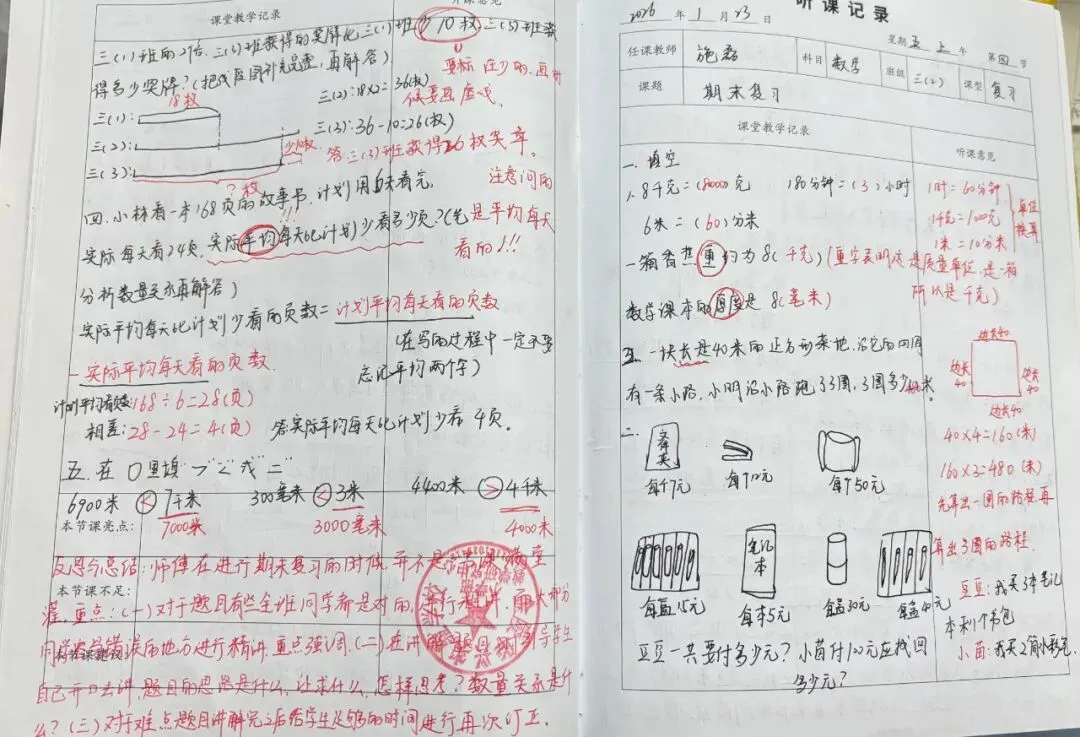 课堂教学记录
听课意见
三(1)班的2倍.三(3)班获得的奖牌比三(2)班少10枚,三(3)班获
得多少奖牌?(把线段图补充完整,再解答)
要标注少的,画时
候要画虚线.
18枚
三(1):
三(2):
三(3):
少10枚
?枚
三(2):18×2=36(枚)
三(3):36-10=26(枚)
答:三(3)班获得26枚奖牌。
四.小林看一本168页的故事书,计划用6天看完,
实际每天看24页.实际平均每天比计划少看多少页?(先
分析数量关系再解答)
注意问的
是平均每天
看的!!!
实际平均每天比计划少看的页数=计划平均每天看的页数
-实际平均每天看的页数.
(在写的过程中一定不要
忘记平均两个字)
168÷6=28(页)
相差:28-24=4(页) 答:实际平均每天比计划少看4页。
五.在○里填">""<"或"="
6900米<7千米 300毫米<3米 4400米>4千米
7000米 3000毫米 4000米
本节课亮点:
反思与总结:师傅在进行期末复习的时候,并不是
本节课不足:
灌,重点:(一)对于题目有些全班同学都是对的,
错误的地方进行精讲,重点强调.(二)在讲解
导学生
自己开口去讲,题目的思路是什么,让求什么,怎样思考?数量关系是什
么?(三)对于难点题目讲解完之后给学生足够的时间进行再次订正.
听课记录
2026年1月23日 星期五上午 第四节
任课教师 施磊 科目 数学 班级 三(2) 课型 复习
课题 期末复习
课堂教学记录
听课意见
一.填空
1.8千克=(8000)克 180分钟=(3)小时
6米=(60)分米
1时=60分钟
1千克=1000克
1米=10分米
单位换算
一箱香蕉重约为8(千克)(重字表明他是质量单位,是一箱
所以是千克)
数学课本的厚度是8(毫米)
五.一块长是40米的正方形菜地,沿它的四周
有一条小路,小明沿小路跑了3圈,3圈多少米
边长40
边长40
边长40
边长40
40×4=160(米)
160×3=480(米)
先算出一圈的路程,再
算出3圈的路程.
二.
每个7元 每个10元 每个50元
笔记本
每盒15元 每本5元 每盒30元 每盒40元
豆豆:我买3本笔记
本和1个书包
豆豆一共要付多少元?小茵付100元应找回
多少元?